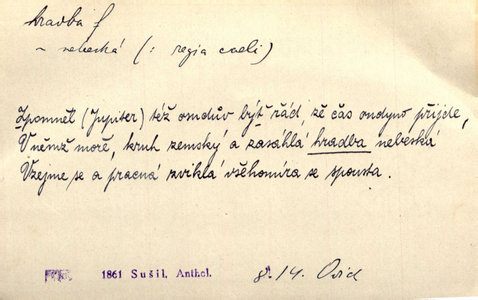 hradba f
~ nebeská (: regia caeli)
Zpomněl (Jupiter) též osudův býť řád, že čas ondyno přijde,
V němž moře, kruh zemský a zasáhlá hradba nebeská
Vzejme se a pracná zviklá všehomíra se spousta.
1861 Sušil, Anthol. 8.14. Ovid